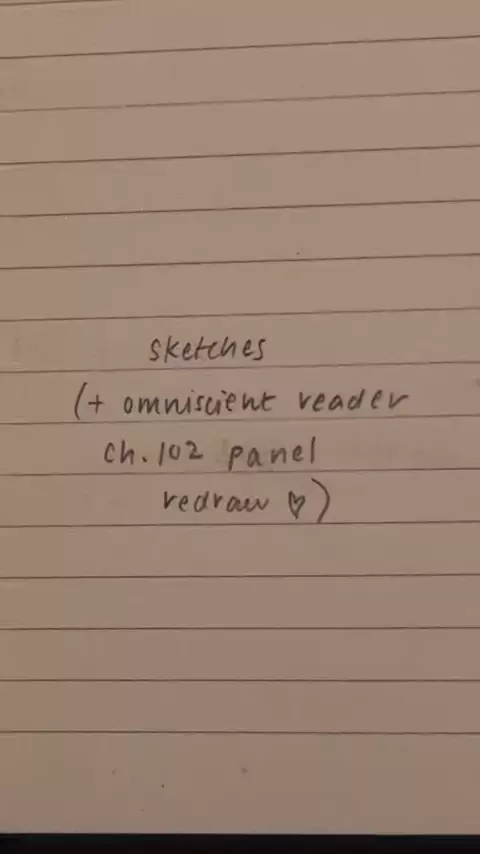 sketches
(+ omniscient reader
ch. 102 panel
redraw ♡)